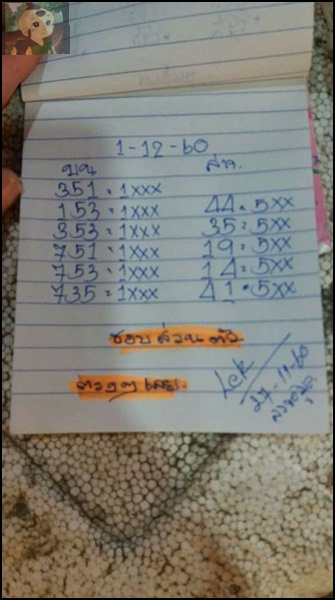 1-12-60
บน ล่าง.
351 = 1xxx
153 = 1xxx 44 = 5xx
353 = 1xxx 35 = 5xx
751 = 1xxx 19 = 5xx
753 = 1xxx 14 = 5xx
735 = 1xxx 41 = 5xx
ชอบ ส่วน ตัว
Lek
27-11-60